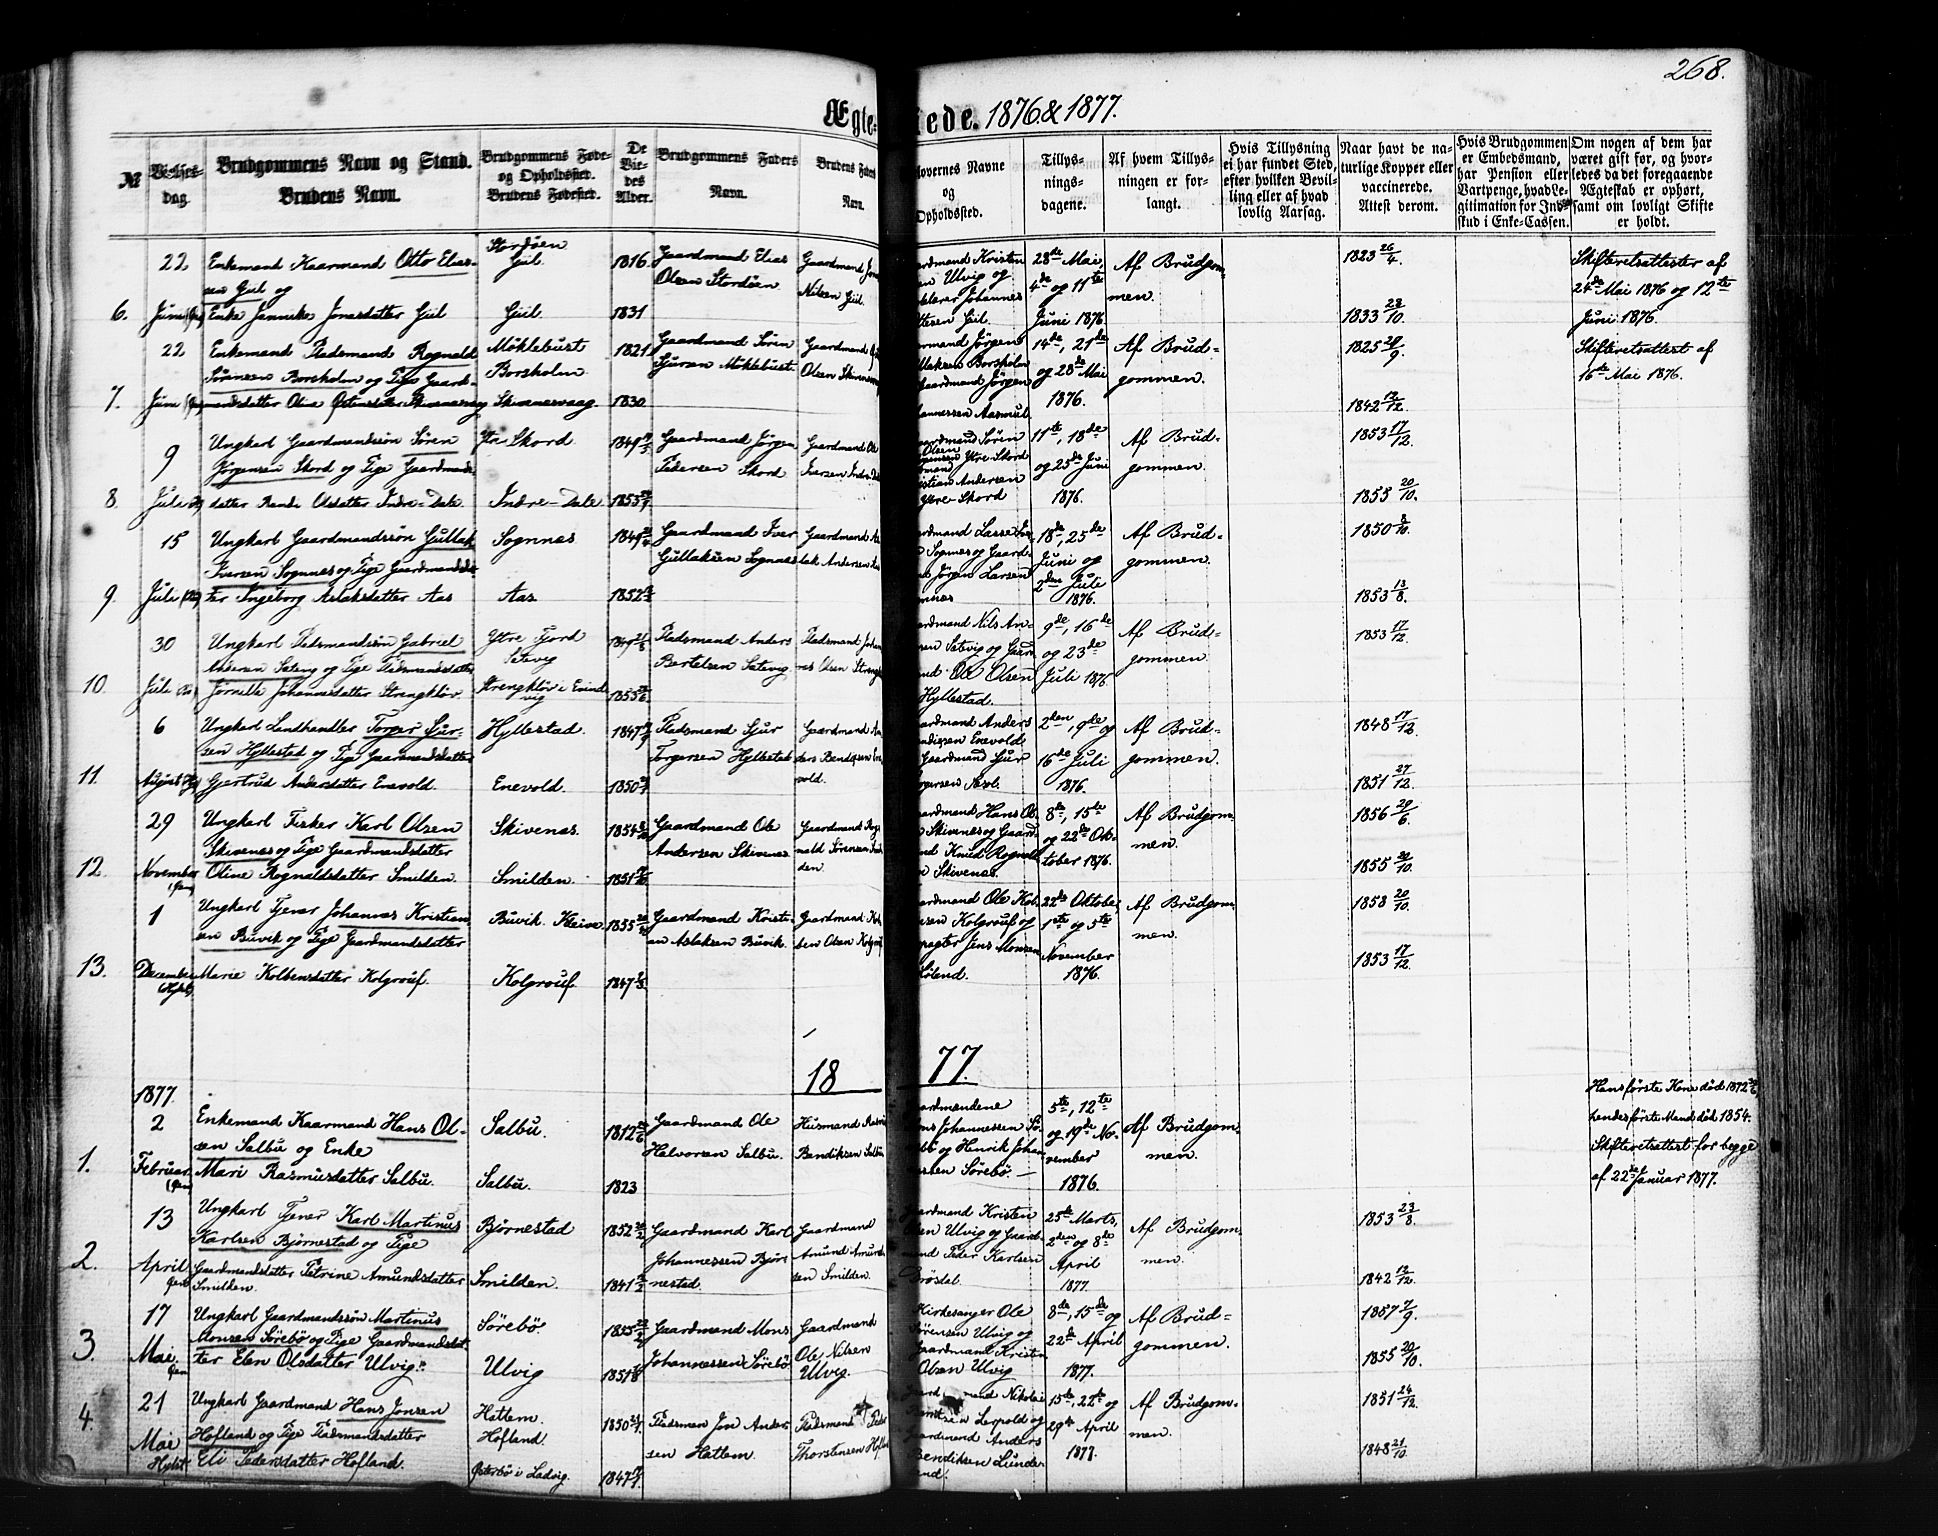 268.
Ægte-
kede. 1876 & 1877.
№
Vielses-
dag.
Brudgommens Navn og Stand.
Brudens Navn.
Brudgommens Føde-
og Opholdssted.
Brudens Fødested.
De
Vie-
des
Alder.
Brudgommens Faders
Navn.
Brudens Faders
Navn.
lovernes Navne
og
Opholdssted.
Tillys-
nings-
dagene.
Af hvem Tillys-
ningen er for-
langt.
Hvis Tillysning
ei har fundet Sted,
efter hvilken Bevil-
ling eller af hvad
lovlig Aarsag.
Naar havt de na-
turlige Kopper eller
vaccinerede.
Attest derom.
Hvis Brudgommen
er Embedsmand,
har Pension eller
Vartpenge, hvad Le-
gitimation for Ind-
skud i Enke-Cassen.
Om nogen af dem har
været gift før, og hvor-
ledes da det foregaaende
Ægteskab er ophørt,
samt om lovligt Skifte
er holdt.
6.
22
Juni
Enkemand Kaarmand Otto Elias-
sen Giil og
Enke Jannike Jonsdatter Giil
Stordøen
Giil.
Giil.
1816
1831
Gaardmand Elias
Olsen Stordøen
Gaardmand
Nilsen Giil
ardmand Kristen
en Ulvig og
Johannes
Giil
28de Mai,
4de og 11te
Juni 1876
Af Brudgom-
men.
1823 26/4.
1833 28/10.
Skifteretsattester af
24de Mai 1876 og 12te
Juni 1876.
7.
22
Juni
Enkemand Pladsmand Rognald
Sørensen Borsholm og Pige Gaard-
mandsdatter Oline
Møklebust
Borsholm
Skivenesvaag.
1821
1830
Gaardmand Søren
Sjursen Møklebust
Gaardmand
Olsen
Jørgen
Borsholm
aardmand Jørgen
14de, 21de
og 28de Mai
1876.
Af Brud-
gommen.
1825
1842 12/12.
Skifteretsattest af
16de Mai 1876.
8.
9
Juli
Ungkarl Gaardmandssøn Søren
Jørgensen Skord og Pige Gaardmands-
datter Rande Olsdatter Indre-Dale.
Ytre Skord
Indre-Dale
1849
1853
Gaardmand Jørgen
Pedersen Skord
Gaardmand Ole
Iversen Indre Dale
aardmand Søren
Olsen
Ytre Skord
stian Andersen
Ytre-Skord
11te, 18de
og 25de Juni
1876.
Af Brud-
gommen.
1853 17/12.
1855 20/10.
9.
15
Juli
Ungkarl Gaardmandssøn Gullak
Iversen Sognnes og Pige Gaardmandsdat-
ter Ingeborg Aslaksdatter Aas
Sognnes
Aas
1849
1852
Gaardmand Iver
Gullaksen Sognnes
Gaardmand As-
lak Andersen
ardmand Lasse
Sognnes og Gaard-
Jørgen Larsen
18de, 25de
Juni og
2den Juli
1876.
Af Brud-
gommen.
1850 8/10.
1853 13/8.
10.
30
Juli
Ungkarl Pladsmandssøn Gabriel
Andersen Sætevig og Pige Pladsmandsdatter
Jørnelle Johannesdatter Strengkløv
Ytre Fjord
Sætevig
Strengkløv i Evind-
vig
1855
Pladsmand Anders
Bertelsen Sætevig
Pladsmand Johan-
nes Olsen
ardmand Nils An-
sen Sætevig og Gaard
Ole Olsen
Hyllestad.
9de, 16de
og 23de
Juli 1876
Af Brud-
gommen.
1853 17/12.
11.
6
August
Ungkarl Landhandler Torger Sjur-
sen Hyllestad og Pige Gaardmandsdatter
Gjertrud Andersdatter Enevold.
Hyllestad.
Enevold.
1847
1850
Pladsmand Sjur
Torgersen Hyllestad
Gaardmand An-
ders Bendiksen Ene-
vold.
aardmand Anders
ndiksen Enevold
Gaardmand Sjur
2den, 9de og
16de Juli
1876.
Af Brud-
gommen.
1848 17/12.
1851 27/12.
12.
29
November
Ungkarl Fisker Karl Olsen
Skivenes og Pige Gaardmandsdatter
Oline Rognaldsdatter Smilden.
Skivenes.
Smilden.
1854
1851
Gaardmand Ole
Andersen Skivenes
Gaardmand Rog-
nald Sørensen
den.
ardmand Hans Ol-
Skivenes og Gaard-
nd Knud Rognald
Skivenes.
8de, 15de
og 22de Ok-
tober 1876.
Af Brudgom-
men.
1856 29/6.
1855 20/10.
13.
1
December
Ungkarl Tjener Johannes Kristian-
sen Buvik og Pige Gaardmandsdatter
Marie Kolbensdatter Kolgrouf.
Buvik.
Kolgrouf
1855
1847
Gaardmand Kristi-
an Aslaksen Buvik.
Gaardmand Kol-
ben Olsen
ardmand Ole Kol-
sen Kolgrouf og
Jens Monsen
22de Oktober
1ste og 5te
November
1876.
Af Brudgom-
men.
1858 20/10.
1853 17/12.
18 77.
1877.
1.
2
Februar
Enkemand Kaarmand Hans Ol-
sen Salbu og Enke
Mari Rasmusdatter Salbu.
Salbu.
Salbu.
1812
1823
Gaardmand Ole
Halvorsen Salbu.
Husmand Rasmus
Bendiksen Salbu
aardmændene
Johannessen Sø-
rebø og Henrik Johan-
nessen Sørebø.
5te, 12te
og 19de No-
vember
1876.
Af Brudgom-
men.
Hans første Kone død 1872
hendes første Mand død 1854.
Skifteretsattest for begge
af 22de Januar 1877.
2.
13
April
Ungkarl Tjener Karl Martinus
Karlsen Bjørnestad og Pige
Gaardmandsdatter Petrine Amundsdatter
Smilden.
Bjørnestad
Smilden.
1852
1841
Gaardmand Karl
Johannessen Bjør-
nestad
Gaardmand
Amund Amund-
sen Smilden.
ardmand Kristen
sen Ulvig og Gaard-
mand Peder Karlsen
25de Marts,
2den og 8de
April
1877.
Af Brudgom-
men.
1853 23/8.
1842 12/12.
3.
17
Mai.
Ungkarl Gaardmandssøn Martinus
Monsen Sørebø og Pige Gaardmandsdat-
ter Elen Olsdatter Ulvig.
Sørebø.
Ulvig
1855
1851
Gaardmand Mons
Johannessen Sørebø
Gaardmand
Ole Nilsen
Ulvig.
Kirkesanger Ole
Sørensen Ulvig og
Gaardmand Kristen
Olsen Ulvig
8de, 15de og
22de April
1877.
Af Brud-
gommen.
1857 7/9.
1855 20/10.
4.
21
Mai
Hylst
Ungkarl Gaardmand Hans Jonsen
Hofland og Pige Pladsmandsdatter
Eli Pedersdatter Hofland.
Hatlem.
Hofland.
Østerbø i Ladvig.
1850
1847
Pladsman Jon Ander-
sen Hatlem
Pladsmand Peder
Thorstensen
mand Nikolai
Leopold og
aardmand Anders
Bendiksen Lunde-
15de, 22de og
29de April
1877.
Af Brudgom-
men.
1851 24/12.
1848 21/10.